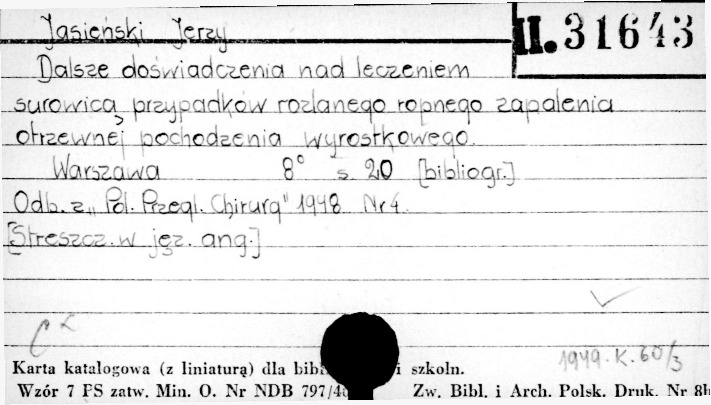 Jasieński Jerzy
II. 31643
Dalsze doświadczenia nad leczeniem
surowicą przypadków rozlanego ropnego zapalenia
otrzewnej pochodzenia wyrostkowego.
Warszawa 8° s. 20 [bibliogr.]
Odb. z „Pol. Przegl. Chirurg" 1948 Nr 4.
[Streszcz. w jęz. ang.]
1949. K. 60/3
Karta katalogowa (z liniaturą) dla bibl i szkoln.
Wzór 7 PS zatw. Min. O. Nr NDB 797/48 Zw. Bibl. i Arch. Polsk. Druk. Nr 8b